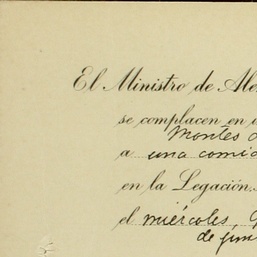 El Ministro de Ale
se complacen en
Montes
a una comid
en la Legación
el miércoles,
de